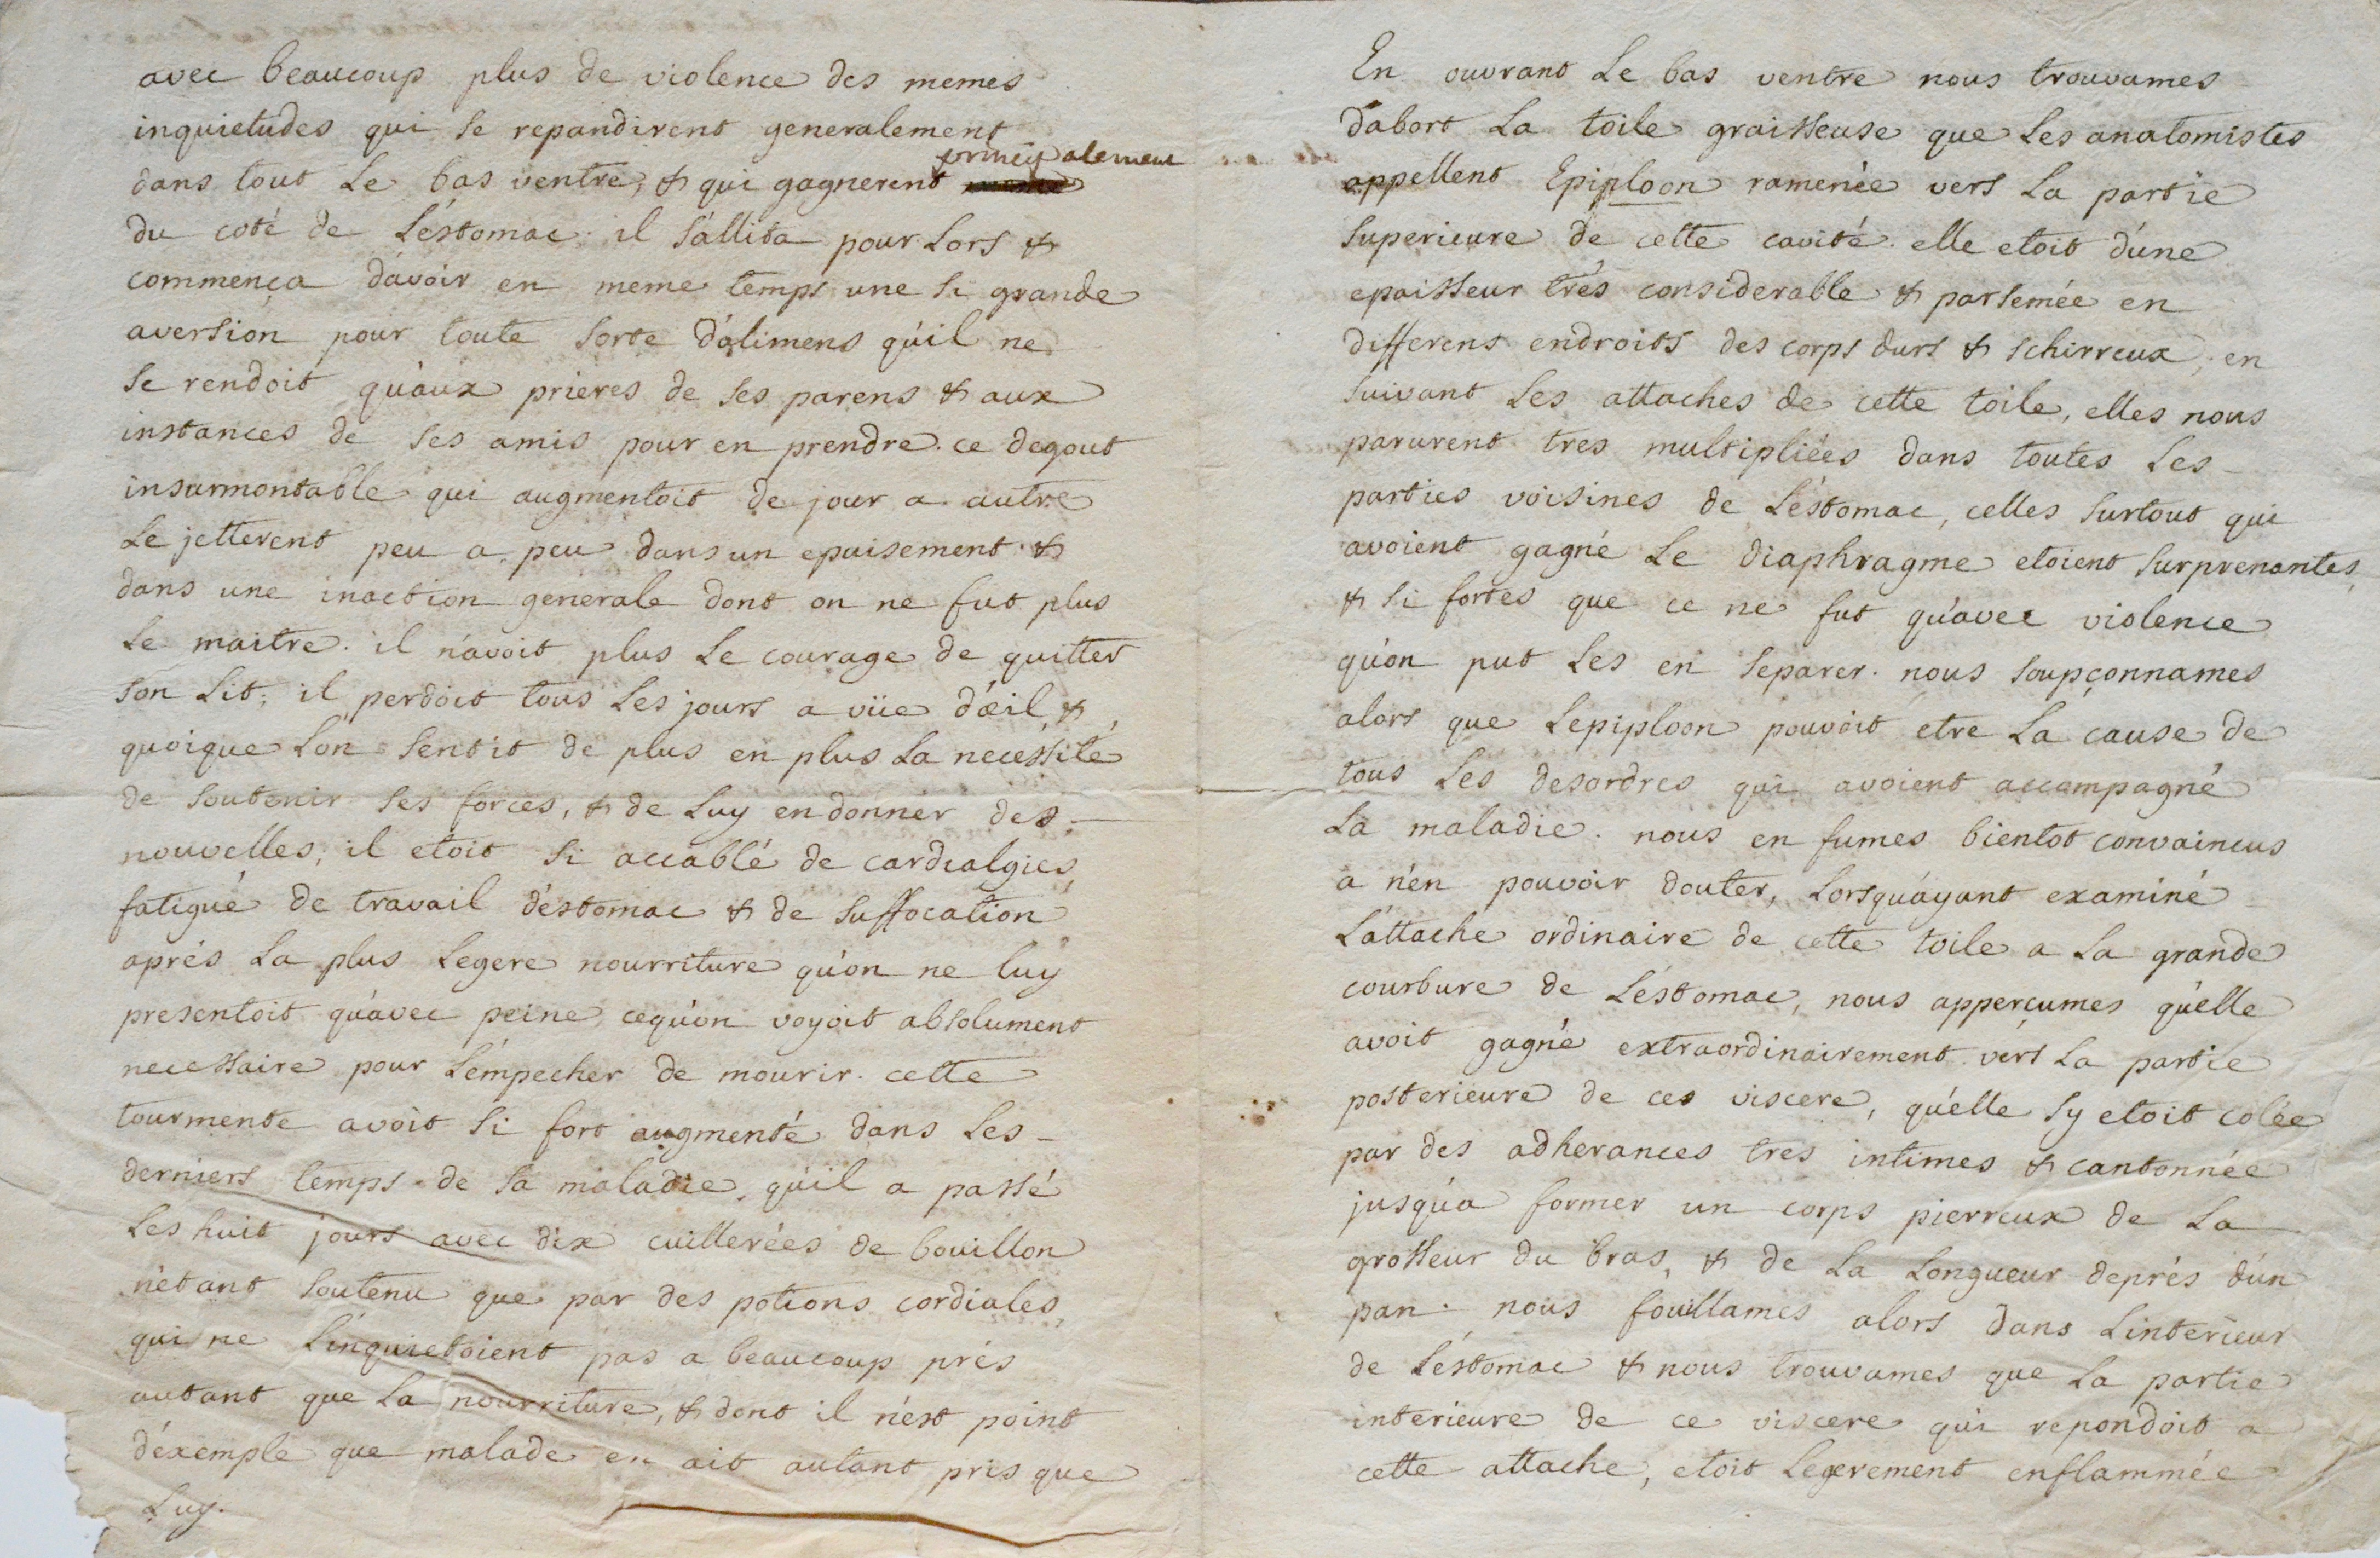 avec beaucoup plus de violence des memes
inquietudes qui se repandirent generalement
principalement
dans tout le bas ventre, & qui gagnerent
du coté de L'éstomac. il s'allita pour Lors &
commença d'avoir en meme temps une si grande
aversion pour toute sorte d'alimens qu'il ne
se rendoit qu'aux prieres de ses parens & aux
instances de ses amis pour en prendre. ce degout
insurmontable qui augmentoit de jour a autre
Le jetterent peu a peu dans un epuisement &
dans une inaction generale dont on ne fut plus
Le maitre. il n'avoit plus Le courage de quitter
son Lit; il perdoit tous Les jours a vüe d'œil, &
quoique L'on sentit de plus en plus La necessité
de soutenir ses forces, & de Luy en donner des
nouvelles, il etoit si accablé de cardialgies,
fatigué de travail d'éstomac & de suffocation
aprés La plus Legere nourriture qu'on ne luy
presentoit qu'avec peine, cequ'on voyoit absolument
necessaire pour L'émpecher de mourir. cette
tourmente avoit si fort augmenté dans Les
derniers temps de sa maladie, qu'il a passé
Les huit jours avec dix cuillerées de bouillon
n'etant soutenu que par des potions cordiales,
qui ne L'inquietoient pas a beaucoup prés
autant que La nourriture, & dont il n'est point
d'éxemple que malade en ait autant pris que
Luy.
En ouvrant Le bas ventre nous trouvames
d'abort La toile graisseuse que Les anatomistes
appellent Epiploon ramenée vers La partie
superieure de cette cavité. elle etoit d'une
epaisseur trés considerable & parsemée en
differens endroits des corps durs & schirreux, en
suivant Les attaches de cette toile, elles nous
parurent tres multipliées dans toutes Les
parties voisines de L'éstomac, celles surtout qui
avoient gagné Le diaphragme etoient surprenantes,
& si fortes que ce ne fut qu'avec violence
qu'on put Les en separer. nous soupçonnames
alors que Lepiploon pouvoit etre La cause de
tous Les desordres qui avoient accompagné
La maladie. nous en fumes bientot convaincus
a n'en pouvoir douter, Lorsqu'ayant examiné
L'attache ordinaire de cette toile a La grande
courbure de L'éstomac, nous apperçumes qu'elle
avoit gagné extraordinairement vers La partie
posterieure de ces viscere, qu'elle sy etoit colée
par des adherances tres intimes & cantonnée
jusqu'a former un corps pierreux de La
grosseur du bras, & de La Longueur deprés d'un
pan. nous fouillames alors dans Linterieur
de L'éstomac & nous trouvames que La partie
interieure de ce viscere qui repondoit a
cette attache, etoit Legerement enflammée